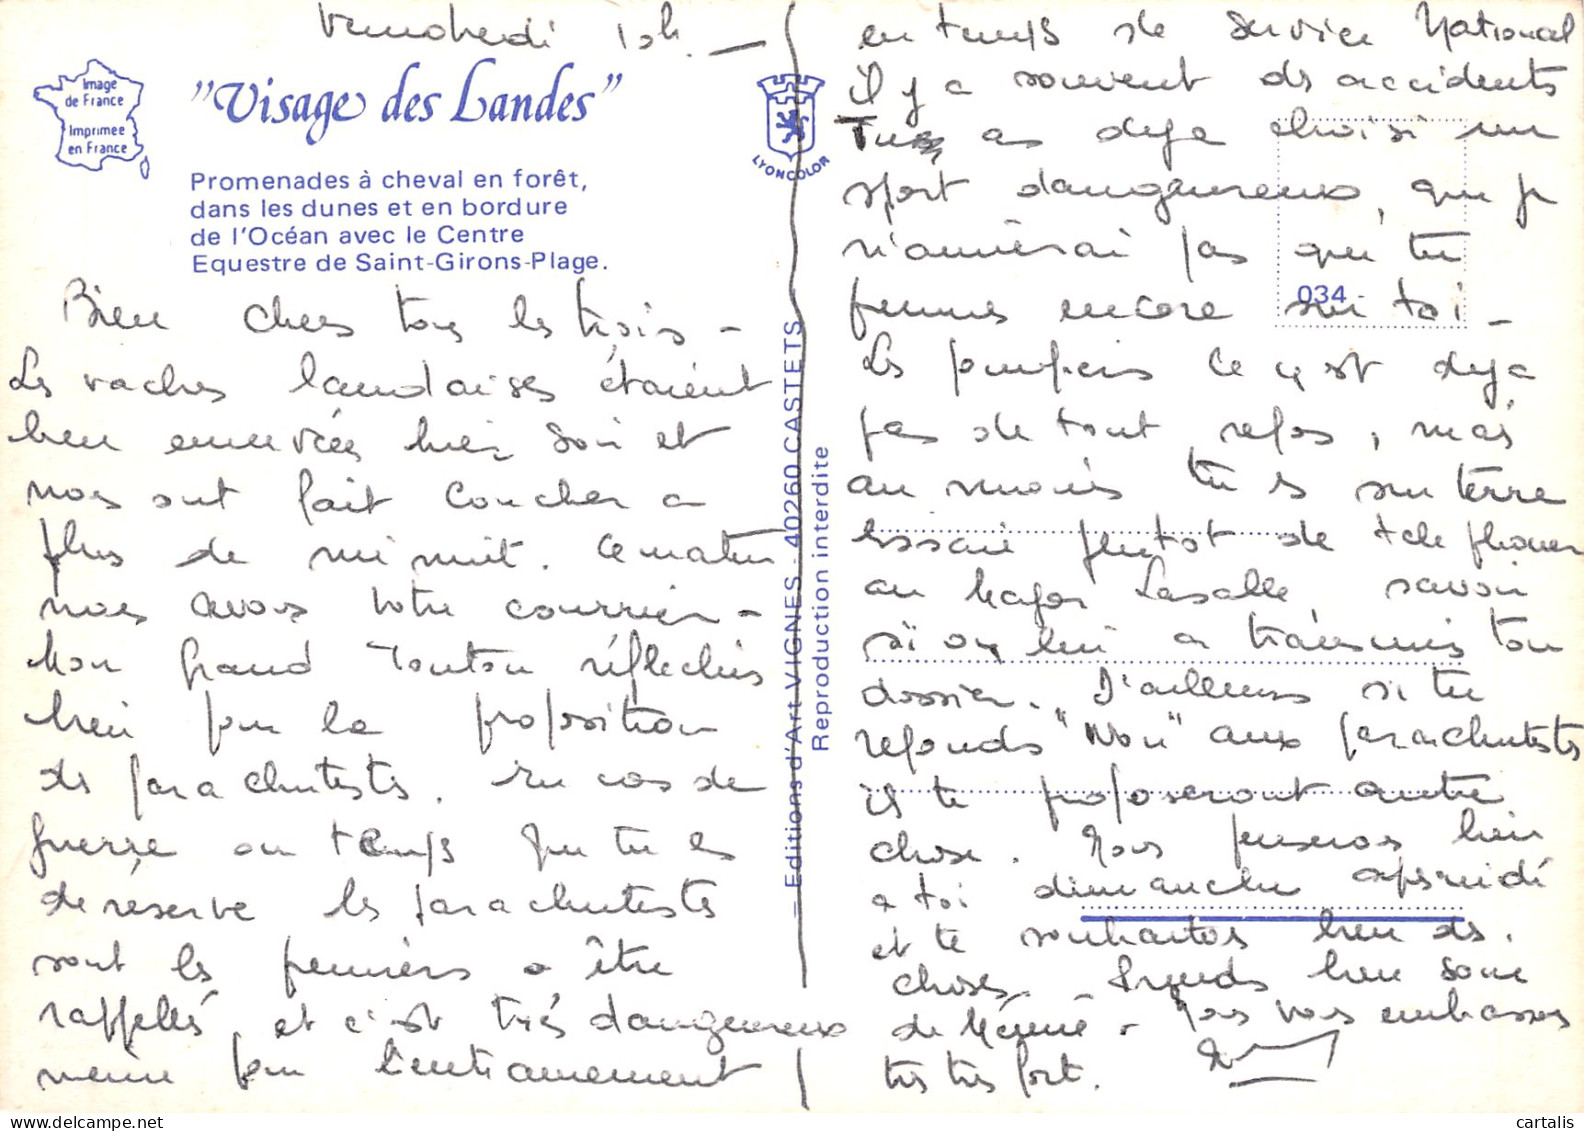 Vendredi 10h. –
Image
de France
Imprimée
en France
"Visage des Landes"
LYONCOLOR
Promenades à cheval en forêt,
dans les dunes et en bordure
de l'Océan avec le Centre
Equestre de Saint-Girons-Plage.
Bien chers tous les trois –
Les vaches landaises étaient
bien enervées hier soir et
nos ont fait coucher a
plus de minuit. Ce matin
nous avons votre courrier –
Mon grand Tonton réfléchis
bien pour la proposition
des parachutistes. En cas de
guerre ou temps que tu es
de réserve les parachutistes
sont les premiers a être
rappellés, et c'est très dangeureux
même pour l'entrainement
– Editions d'Art VIGNES - 40260 CASTETS –
Reproduction interdite
en temps de Service National
il y a souvent des accidents
Tu as deja choisi un
sport dangeureux, que je
n'aimerai pas que tu
prennes encore sur toi –
034
Les pompiers ce n'est deja
pas de tout repos, mais
au moins tu es sur terre
Essaie plutot de telephoner
au Major Lasalle, savoir
si on lui a transmis ton
dossier. D'ailleurs si tu
reponds "Non" aux parachutistes
ils te proposeront autre
chose. Nous penserons bien
a toi dimanche apsmidi
et te souhaitons bien ds.
choses. Prends bien soin
de Mémé – Nous vous embrassons
très très fort.
cartalis